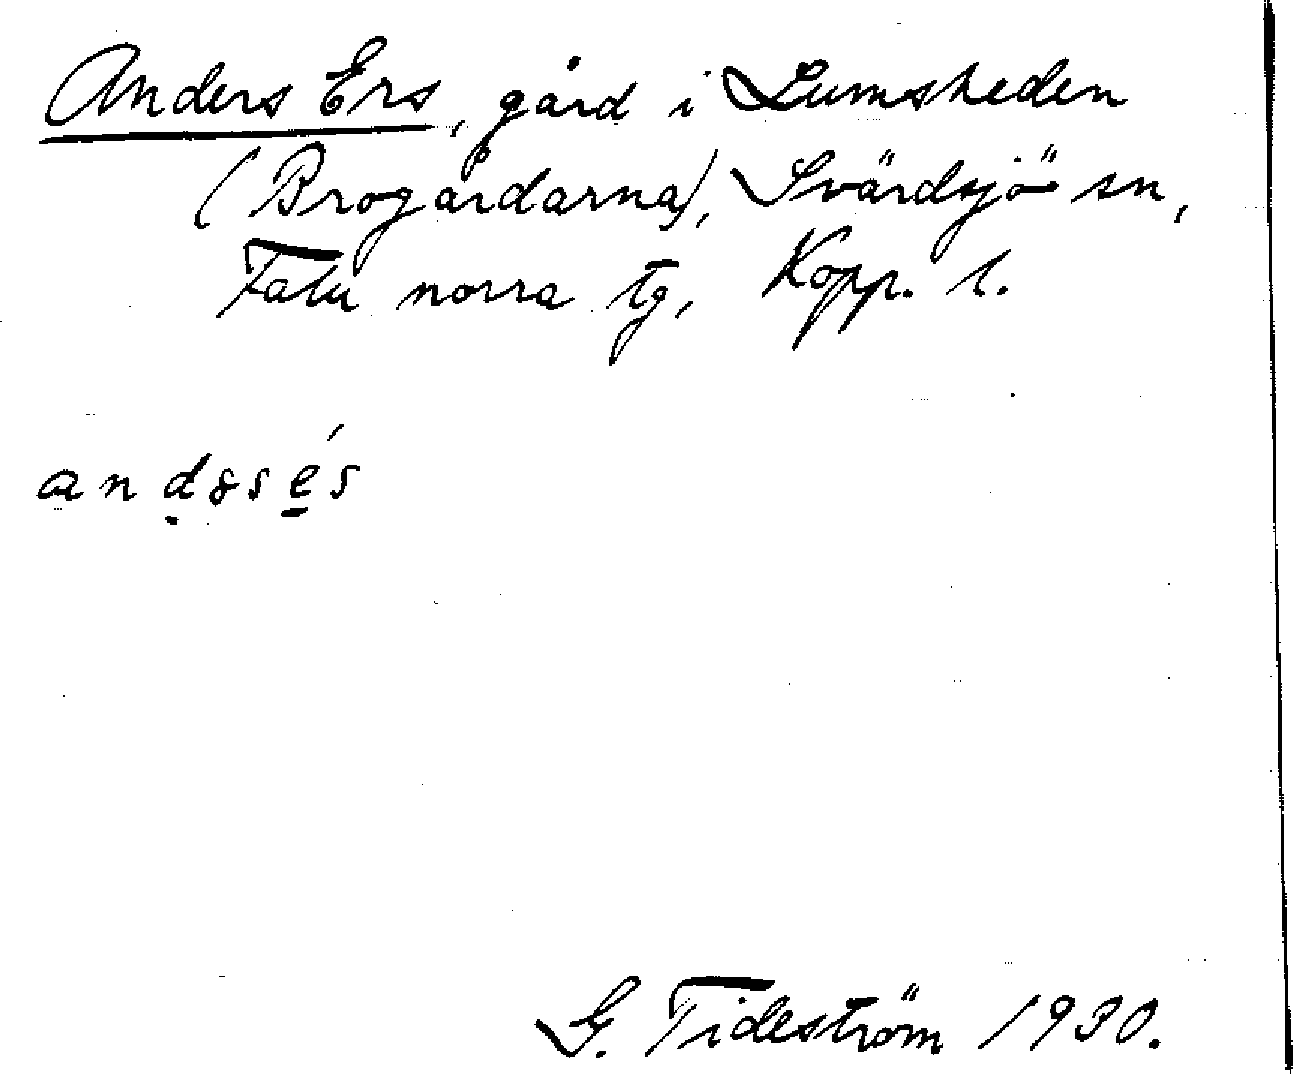 Anders Ers, gård i Lumsheden
(Brogårdarna), Svärdsjö sn,
Falu norra tg, Kopp. l.
G. Tideström 1930.